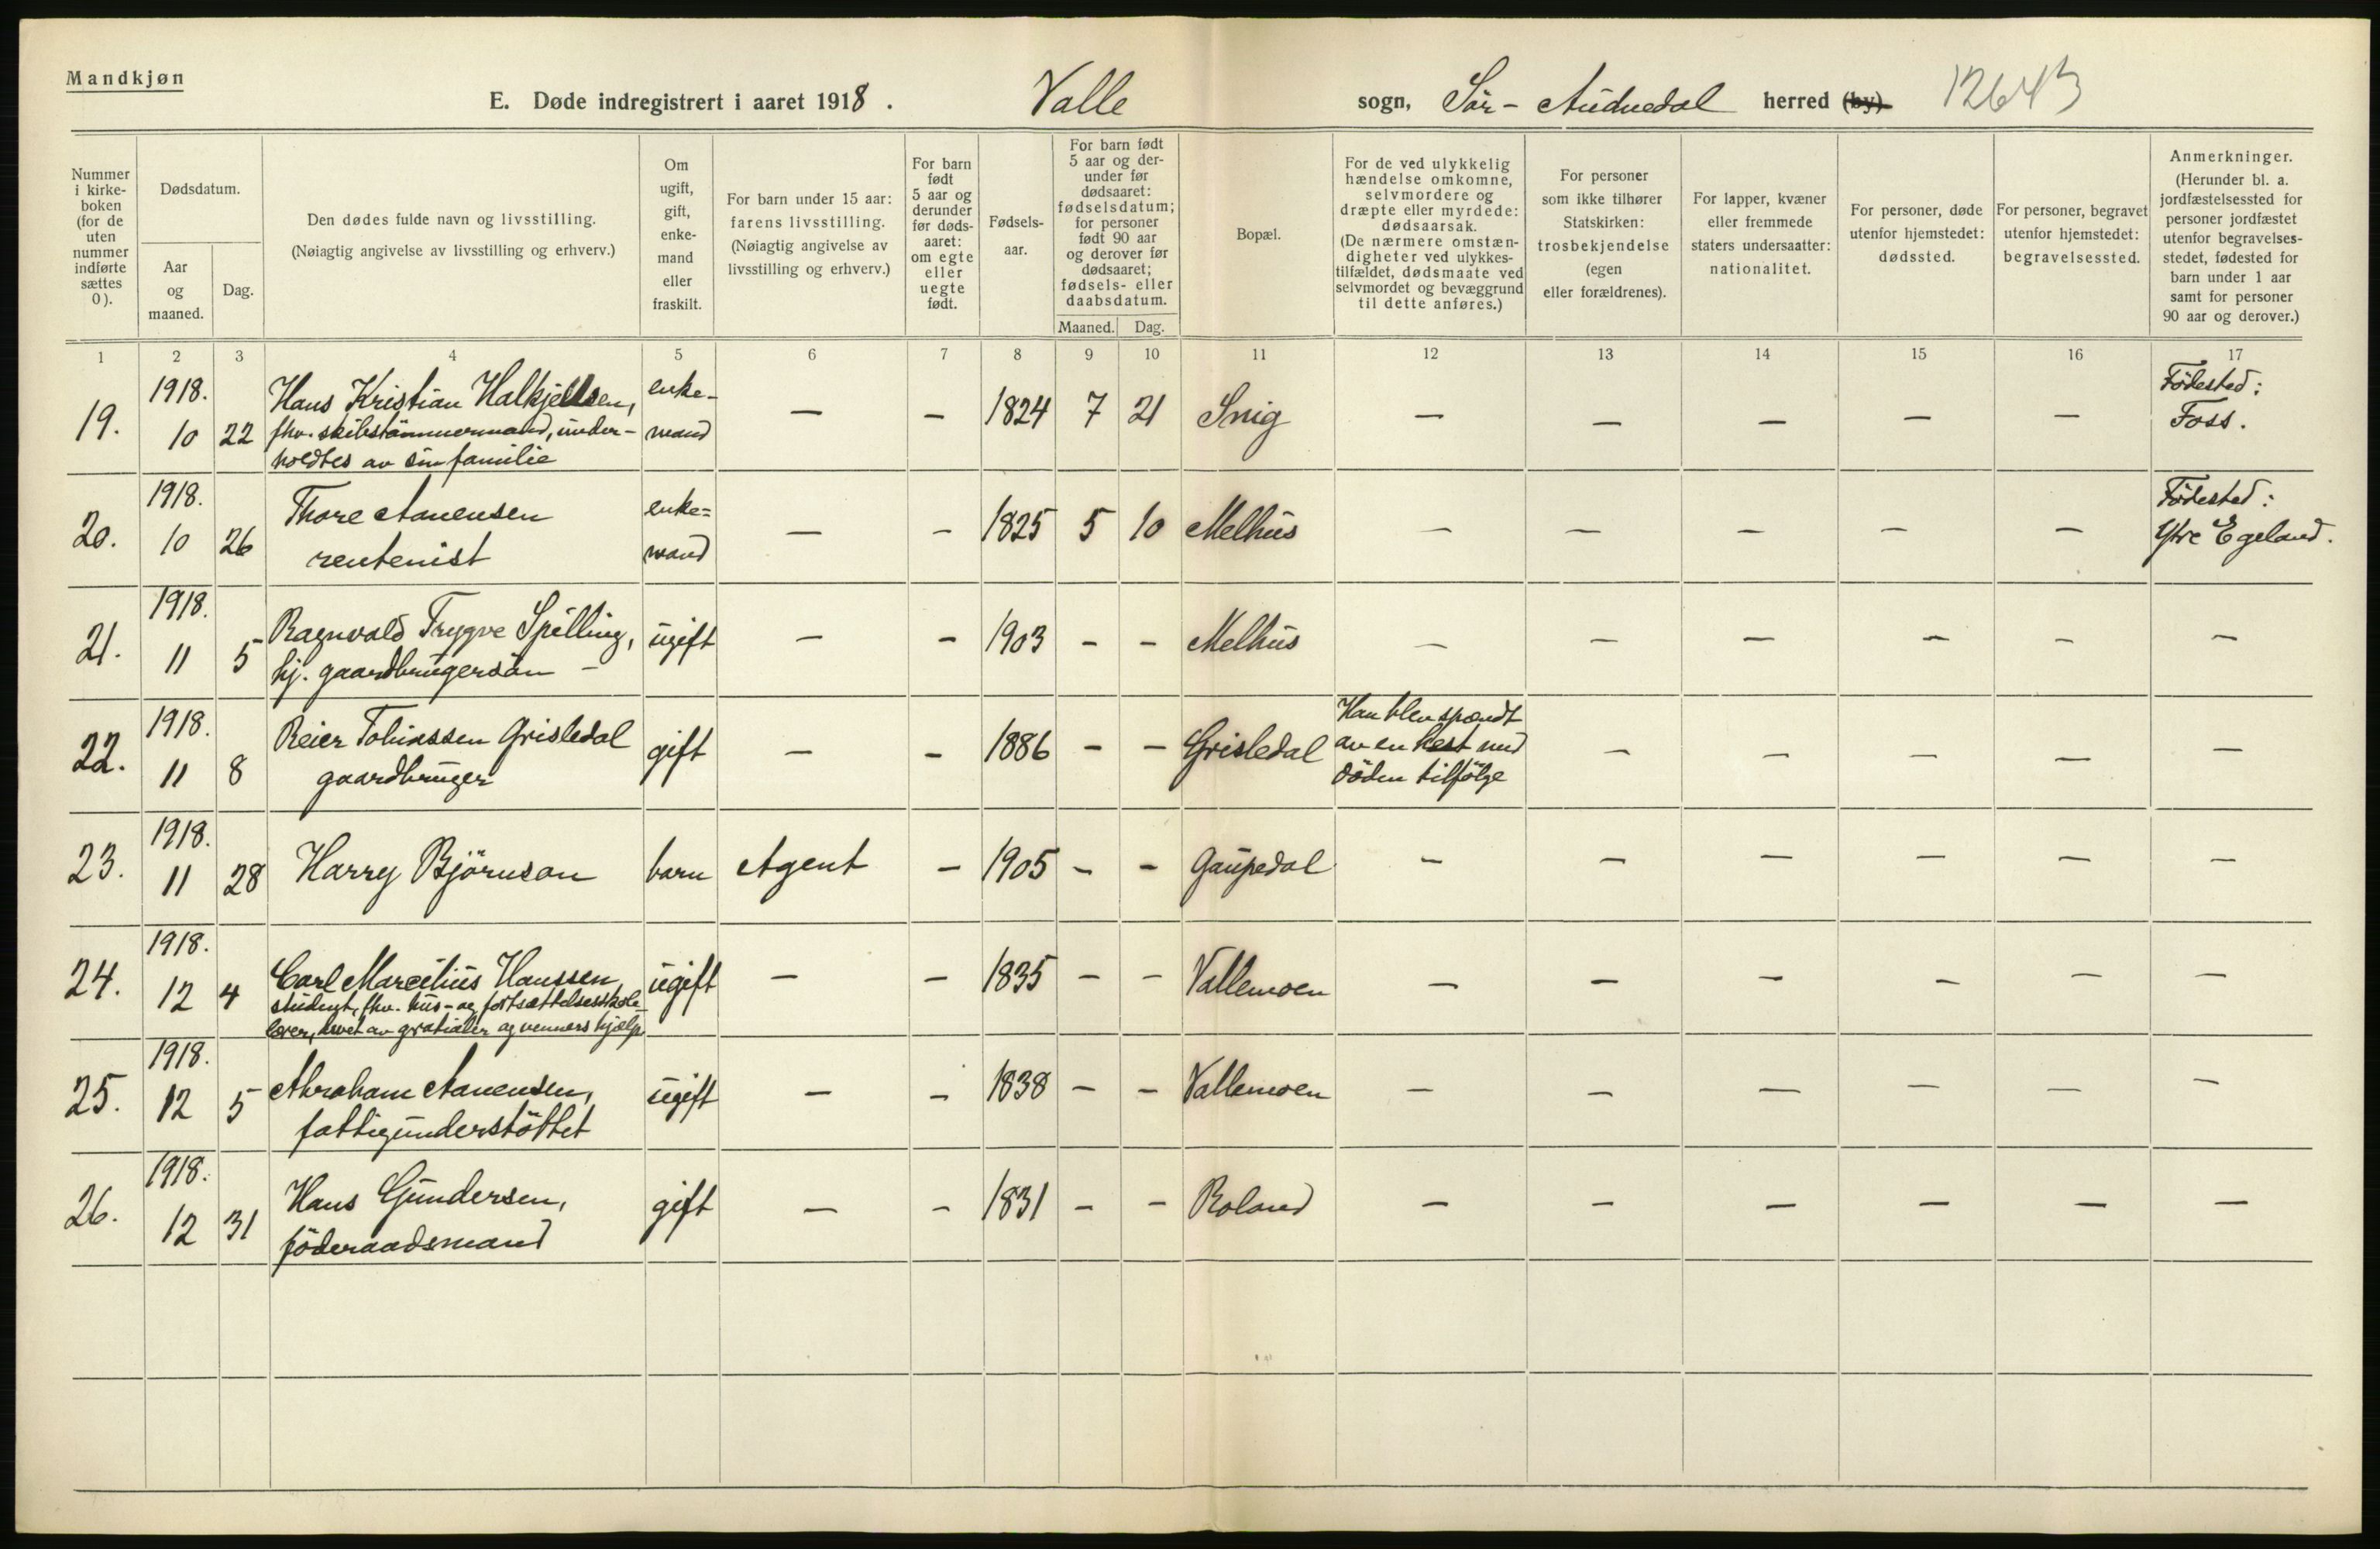 Mandkjøn
E. Døde indregistrert i aaret 1918. Valle sogn, Sör-Audnedal herred (by) 12643
Nummer i kirke-boken (for de uten nummer indførte sættes 0).
Dødsdatum.
Aar og maaned.
Dag.
Den dødes fulde navn og livsstilling.
(Nøiagtig angivelse av livsstilling og erhverv.)
Om ugift, gift, enke-mand eller fraskilt.
For barn under 15 aar: farens livsstilling.
(Nøiagtig angivelse av livsstilling og erhverv.)
For barn født 5 aar og derunder før døds-aaret: om egte eller uegte født.
Fødsels-aar.
For barn født 5 aar og der-under før dødsaaret: fødselsdatum; for personer født 90 aar og derover før dødsaaret; fødsels- eller daabsdatum.
Maaned. Dag.
Bopæl.
For de ved ulykkelig hændelse omkomne, selvmordere og dræpte eller myrdede: dødsaarsak.
(De nærmere omstæn-digheter ved ulykkes-tilfældet, dødsmaate ved selvmordet og bevæggrund til dette anføres.)
For personer som ikke tilhører Statskirken: trosbekjendelse (egen eller forældrenes).
For lapper, kvæner eller fremmede staters undersaatter: nationalitet.
For personer, døde utenfor hjemstedet: dødssted.
For personer, begravet utenfor hjemstedet: begravelsessted.
Anmerkninger.
(Herunder bl. a. jordfæstelsessted for personer jordfæstet utenfor begravelses-stedet, fødested for barn under 1 aar samt for personer 90 aar og derover.)
1 2 3 4 5 6 7 8 9 10 11 12 13 14 15 16 17
19. 1918. 10 22 Hans Kristian Halkjellsen, fhv. skibstömmermand, under-holdtes av sin familie enke-mand — — 1824 7 21 Snig — — — — — Födested: Foss.
20. 1918. 10 26 Thore Aanensen rentenist enke=mand — — 1825 5 10 Melhus — — — — — Födested: Ytre Egeland.
21. 1918. 11 5 Ragnvald Trygve Spilling, hj. gaardbrugersön — ugift — — 1903 — — Melhus — — — — — —
22. 1918. 11 8 Reier Tobiassen Grisledal gaardbruger gift — — 1886 — — Grisledal Han blev spændt av en hest med döden tilfölge — — — — —
23. 1918. 11 28 Harry Björnson barn Agent — 1905 — — Gaupedal — — — — — —
24. 1918. 12 4 Carl Marcelius Hanssen student, fhv. hus- og fortsættelsesskole-lærer, levet av gratialer og venners hjælp. ugift — — 1835 — — Vallemoen — — — — — —
25. 1918. 12 5 Abraham Aanensen, fattigunderstöttet ugift — — 1838 — — Vallemoen — — — — — —
26. 1918. 12 31 Hans Gundersen, föderaadsmand gift — — 1831 — — Roland — — — — — —